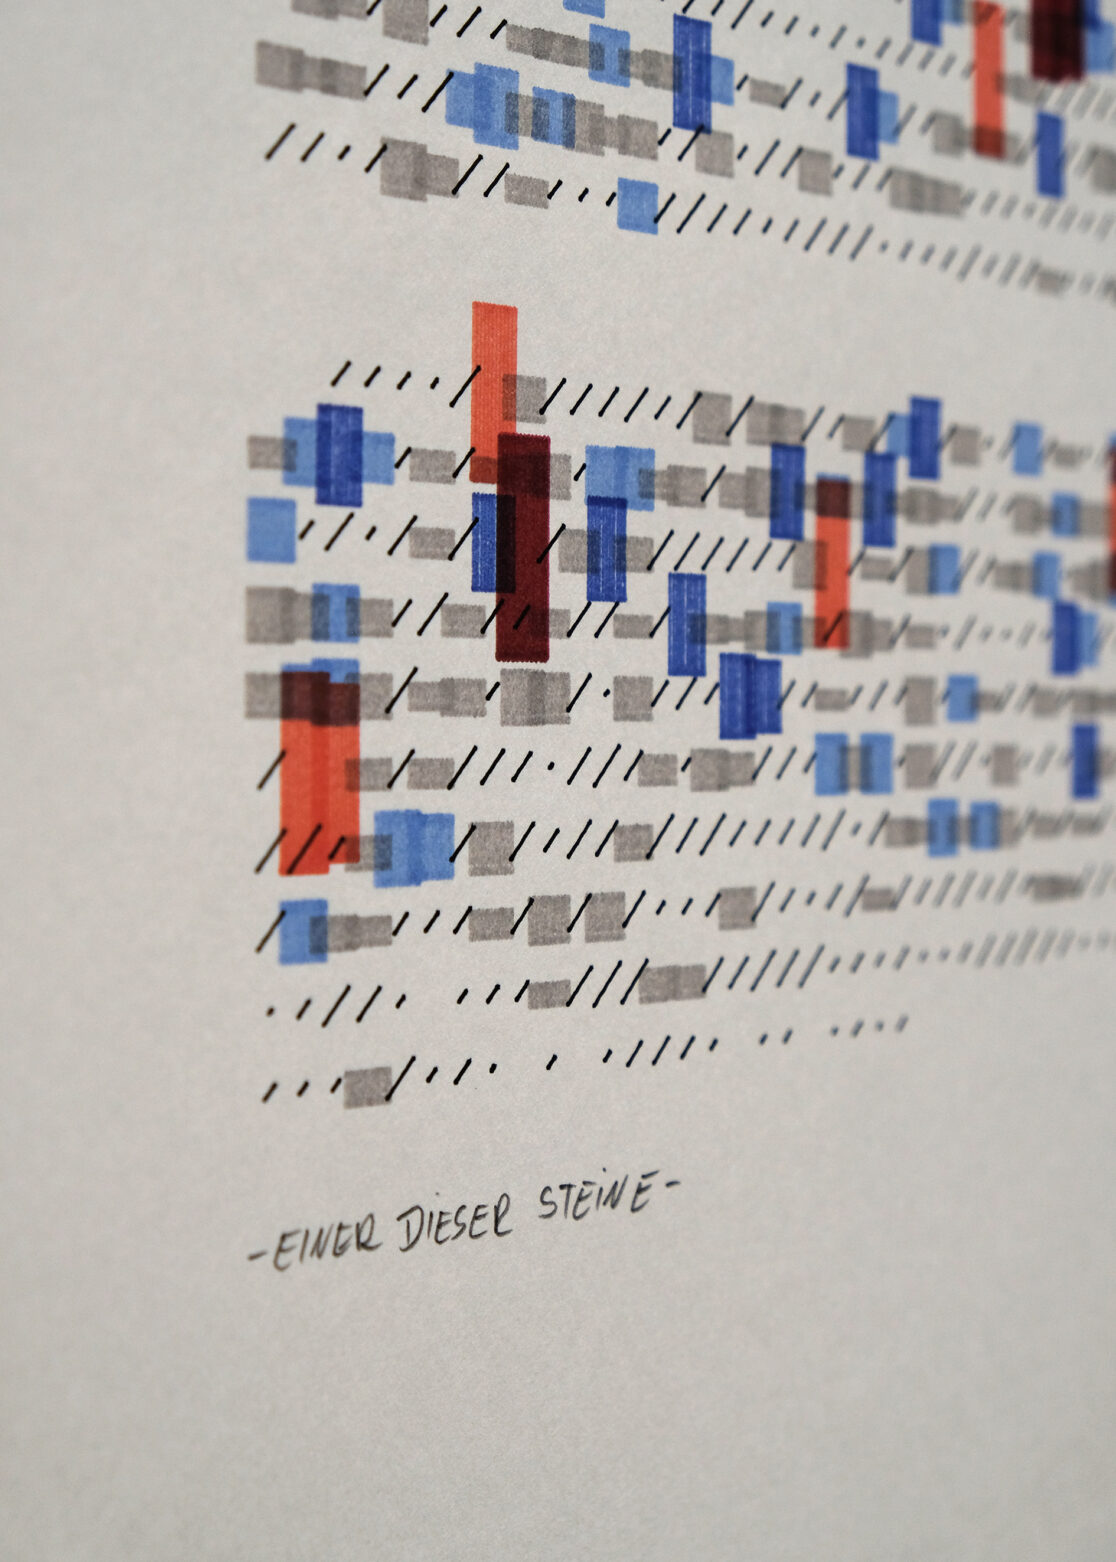 -EINER DIESER STEINE-